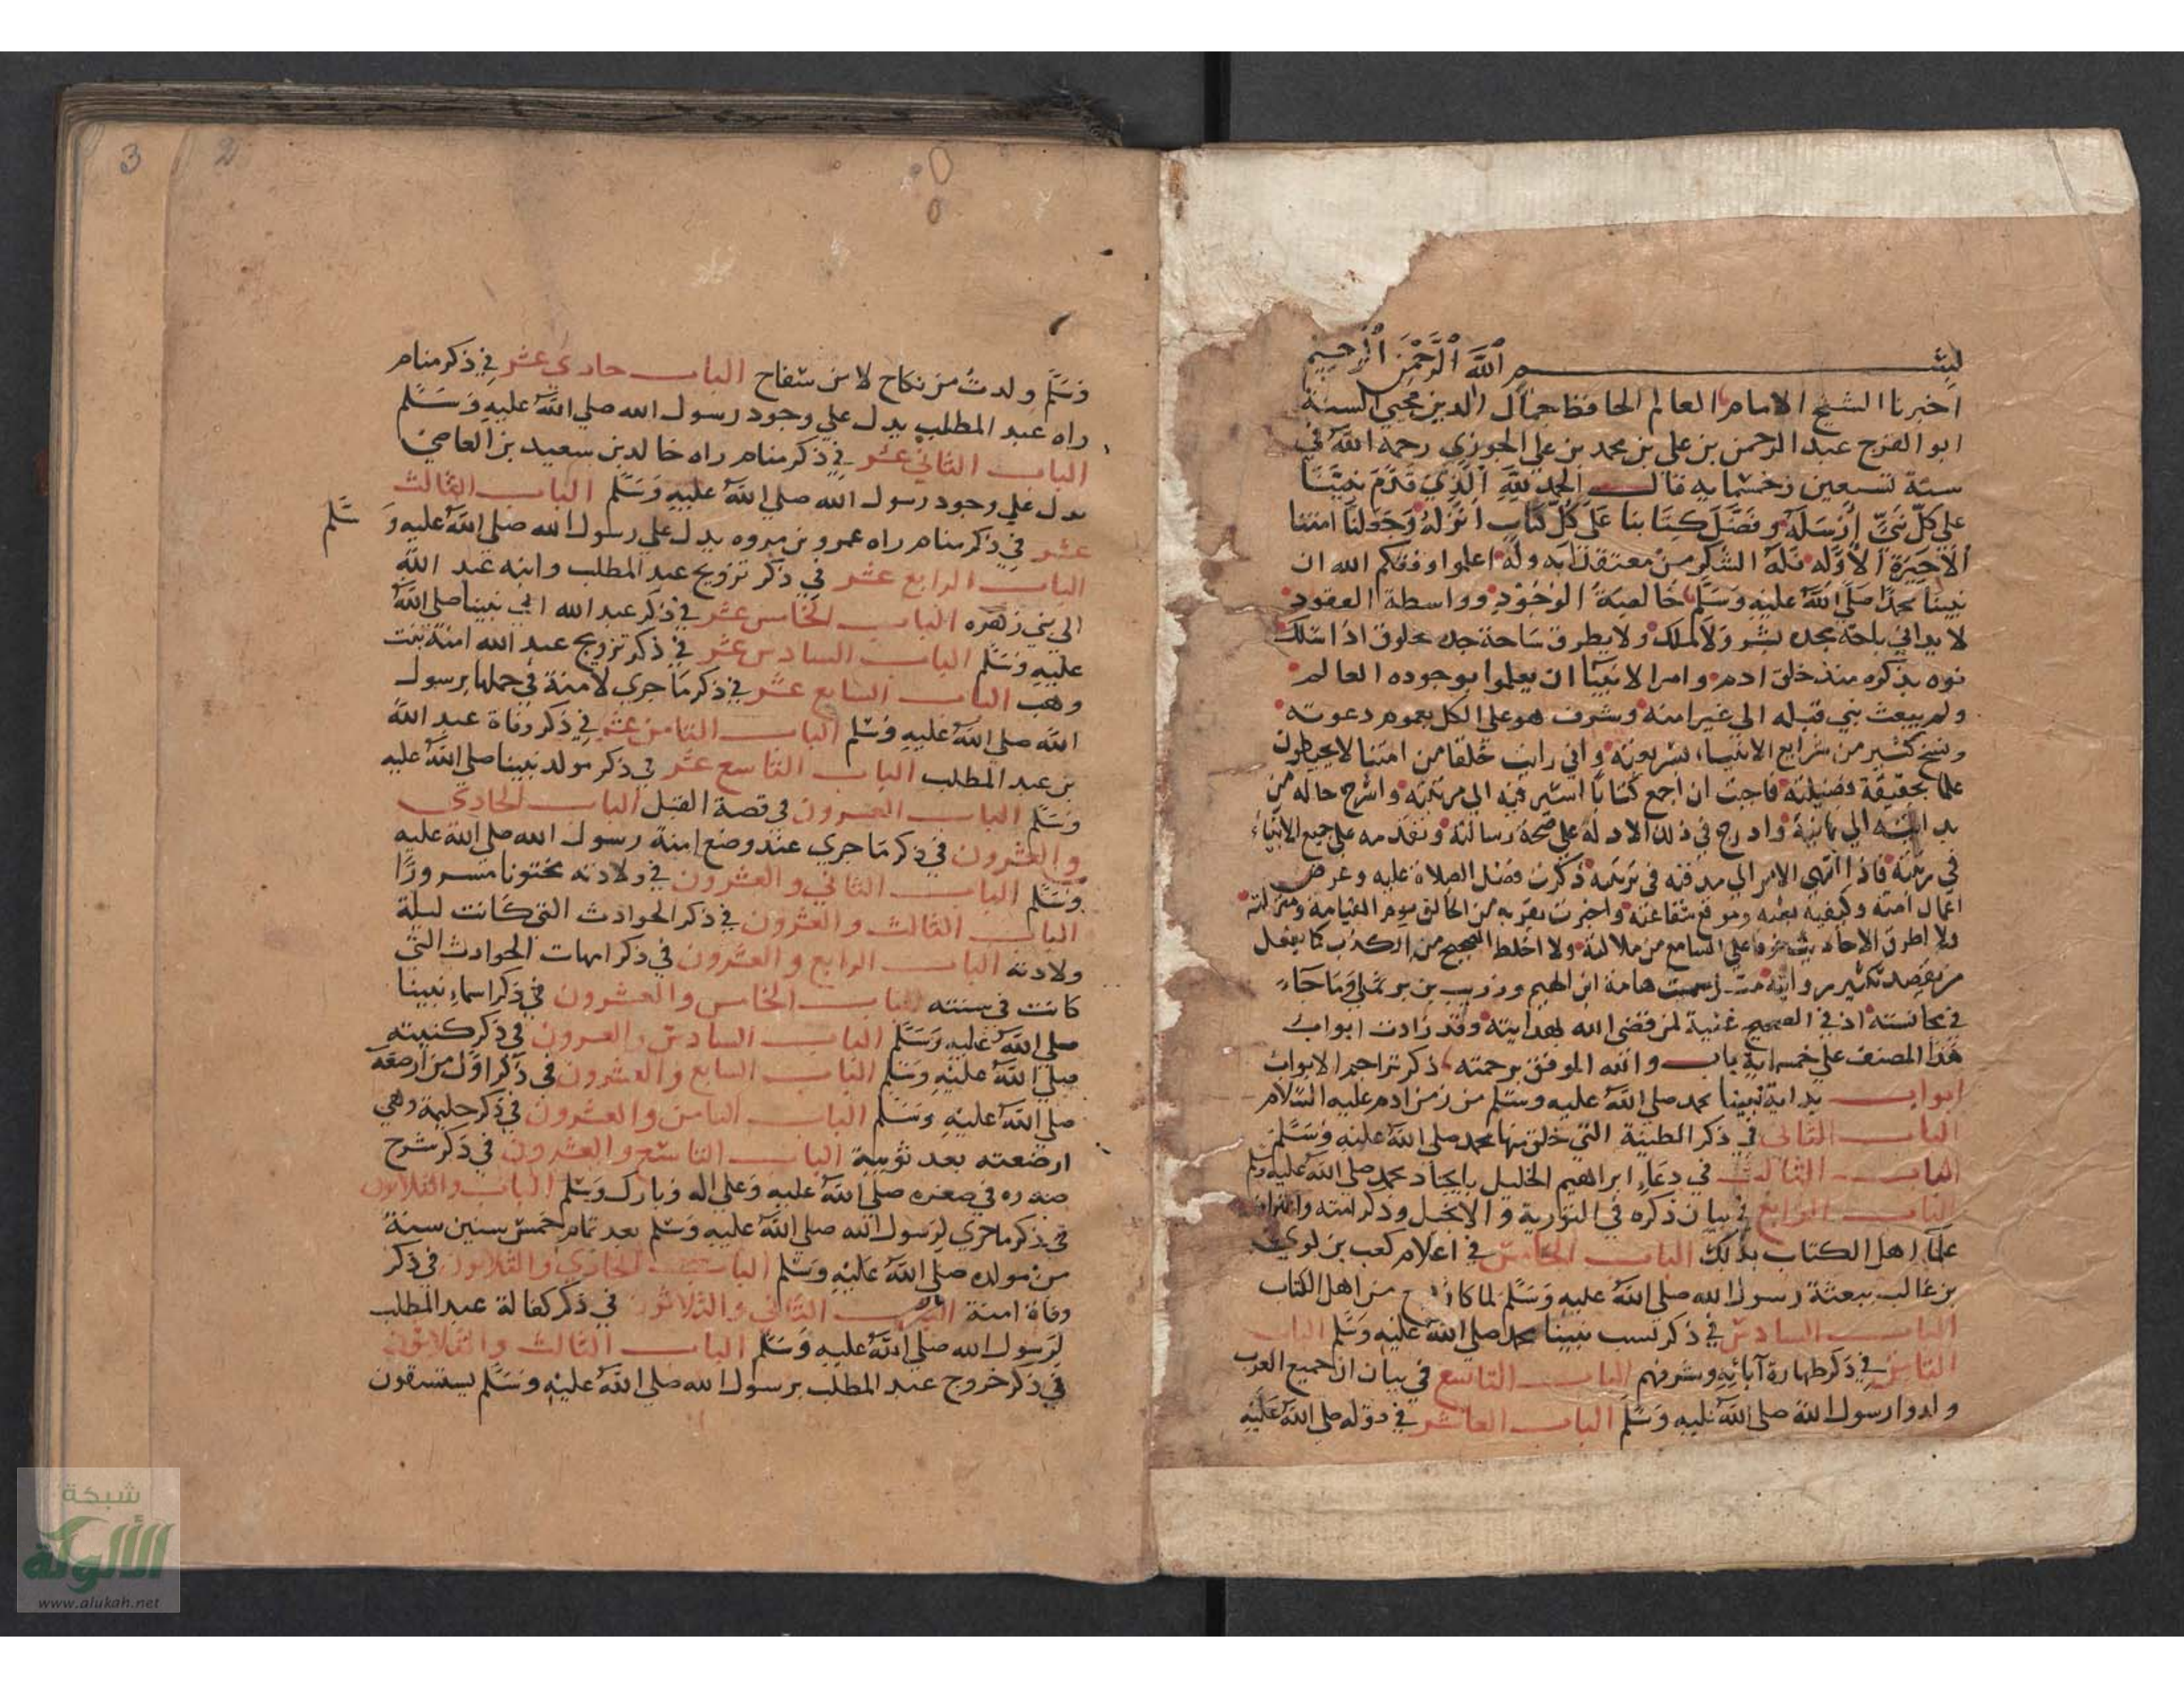 بسم الله الرحمن الرحيم
اخبرنا الشيخ الامام العالم الحافظ جمال الدين محيي السنة
ابو الفرج عبد الرحمن بن علي بن محمد بن علي الجوزي رحمه الله في
سنة تسعين وخمسمايه قال الحمد لله الذي قدم نبينا
علي كل نبي ارسله وفضل كتابنا علي كل كتاب انزله وجعلنا امتنا
الاخيرة الاوله فله الشكر من معتقد انه وله اعلموا وفقكم الله ان
نبينا محمدا صلي الله عليه وسلم خالصة الوجود وواسطة العقود
لا يداني باحة مجده بشر ولا ملك ولا يطرق ساحة جده مخلوق اذا سلك
نوه بذكره منذ خلق ادم وامر الانبيا ان يعلموا بوجوده العالم
ولم يبعث نبي قبله الي غير امته وشرف هو علي الكل بعموم دعوته
ونسخ كثير من شرايع الانبياء بشريعته واني رايت خلقا من امتنا لا يحيطون
علما بحقيقة فضيلته فاحببت ان اجمع كتابا اشير فيه الي مرتبته واشرح حاله من
بدايته الي نهايته وادرج في ذلك الادلة علي صحة رسالته وتقدمه علي جميع الانبياء
في رتبته فاذا انتهي الامر الي مدفنه في تربته ذكرت فضل الصلاة عليه وعرض
اعمال امته وكيفية بعثه وموقع شفاعته واخبرت بقربه من الخالق يوم القيامة ومنزلته
ولا اطرق الاحاديث خوفا علي السامع من ملالته ولا اخلط الصحيح من الكذب كما يفعل
من يقصد تكثير روايته هامة ابن الهيم وزريب بن برثملي وما جاء
في مجانسته اذ في الصحيح غنية لمن قضي الله بهدايته وقد زادت ابواب
هذا المصنف علي خمسماية باب والله الموفق برحمته ذكر تراجم الابواب
ابواب بداية نبينا محمد صلي الله عليه وسلم من زمن ادم عليه السلام
الباب الثاني في ذكر الطينة التي خلق منها محمد صلي الله عليه وسلم
الباب الثالث في دعاء ابراهيم الخليل بايجاد محمد صلي الله عليه وسلم
الباب الرابع في بيان ذكره في التورية والانجيل وذكر امته واعتراف
علما اهل الكتاب بذلك الباب الخامس في اعلام كعب بن لوي
بن غالب ببعثة رسول الله صلي الله عليه وسلم لما كان من اهل الكتاب
الباب السادس في ذكر نسب نبينا محمد صلي الله عليه وسلم الباب
الثامن في ذكر طهارة آبائه وشرفهم الباب التاسع في بيان ان جميع العرب
ولدوا رسول الله صلي الله عليه وسلم الباب العاشر في قوله صلي الله عليه
3 2
وسلم ولدت من نكاح لا من سفاح الباب حادي عشر في ذكر منام
راه عبد المطلب يدل علي وجود رسول الله صلي الله عليه وسلم
الباب الثاني عشر في ذكر منام راه خالد بن سعيد بن العاصي
يدل علي وجود رسول الله صلي الله عليه وسلم الباب الثالث
عشر في ذكر منام راه عمرو بن مروه يدل علي رسول الله صلي الله عليه و سلم
الباب الرابع عشر في ذكر تزويج عبد المطلب وابنه عبد الله
الي بني زهره الباب الخامس عشر في ذكر عبد الله ابي نبينا صلي الله
عليه وسلم الباب السادس عشر في ذكر تزويج عبد الله امنة بنت
وهب الباب السابع عشر في ذكر ما جري لامنة في حملها برسول
الله صلي الله عليه وسلم الباب الثامن عشر في ذكر وفاة عبد الله
بن عبد المطلب الباب التاسع عشر في ذكر مولد نبينا صلي الله عليه
وسلم الباب العشرون في قصة الفيل الباب الحادي
والعشرون في ذكر ما جري عند وضع امنة رسول الله صلي الله عليه
وسلم الباب الثاني والعشرون في ولادته مختونا مسرورا
الباب الثالث والعشرون في ذكر الحوادث التي كانت ليلة
ولادته الباب الرابع والعشرون في ذكر امهات الحوادث التي
كانت في سنته الباب الخامس والعشرون في ذكر اسماء نبينا
صلي الله عليه وسلم الباب السادس والعشرون في ذكر كنيته
صلي الله عليه وسلم الباب السابع والعشرون في ذكر اول من ارضعه
صلي الله عليه وسلم الباب الثامن والعشرون في ذكر حليمة وهي
ارضعته بعد ثويبة الباب التاسع والعشرون في ذكر شرح
صدره في صغره صلي الله عليه وعلي اله وبارك وسلم الباب والثلاثون
في ذكر ما جري لرسول الله صلي الله عليه وسلم بعد تمام خمس سنين سنة
من مولده صلي الله عليه وسلم الباب الحادي والثلاثون في ذكر
وفاة امنة الباب الثاني والثلاثون في ذكر كفالة عبد المطلب
لرسول الله صلي الله عليه وسلم الباب الثالث والثلاثون
في ذكر خروج عبد المطلب برسول الله صلي الله عليه وسلم يستسقون
شبكة
الألوكة
www.alukah.net